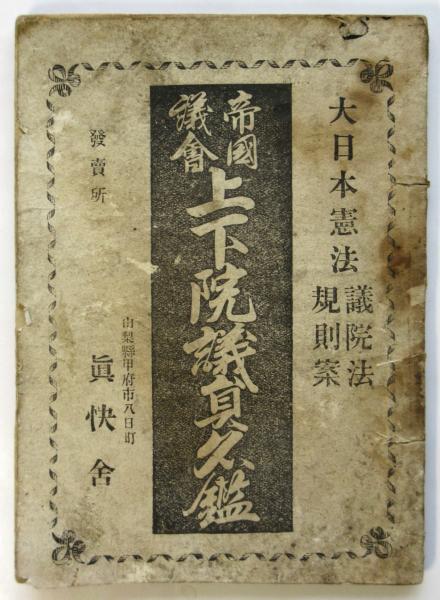 大日本憲法
議院法
規則案
帝國
議會
上下院議員名鑑
發賣所
山梨縣甲府市八日町
眞快舍